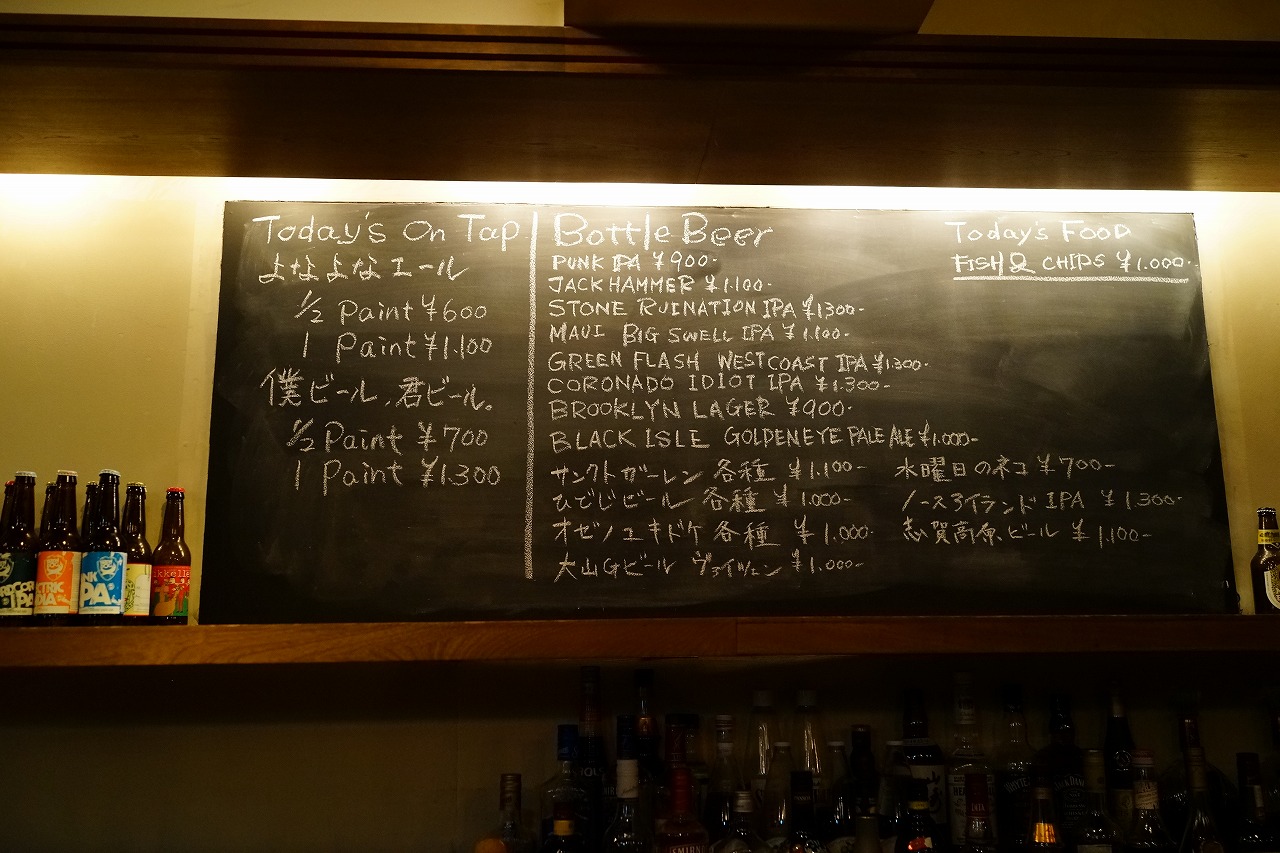 Today's On Tap
よなよなエール
1/2 Paint ¥600
1 Paint ¥1.100
僕ビール、君ビール。
1/2 Paint ¥700
1 Paint ¥1.300
Bottle Beer
PUNK IPA ¥900-
JACK HAMMER ¥1.100-
STONE RUINATION IPA ¥1300-
MAUI BIG SWELL IPA ¥1.100-
GREEN FLASH WESTCOAST IPA ¥1.300-
CORONADO IDIOT IPA ¥1.300-
BROOKLYN LAGER ¥900-
BLACK ISLE GOLDENEYE PALE ALE ¥1.000-
サンクトガーレン 各種 ¥1.100-
ひでじビール 各種 ¥1.000-
オゼノユキドケ 各種 ¥1.000-
大山Gビール ヴァイツェン ¥1.000-
水曜日のネコ ¥700-
ノースアイランド IPA ¥1.300-
志賀高原ビール ¥1.100-
Today's FOOD
FISH & CHIPS ¥1.000-
IPA
PA